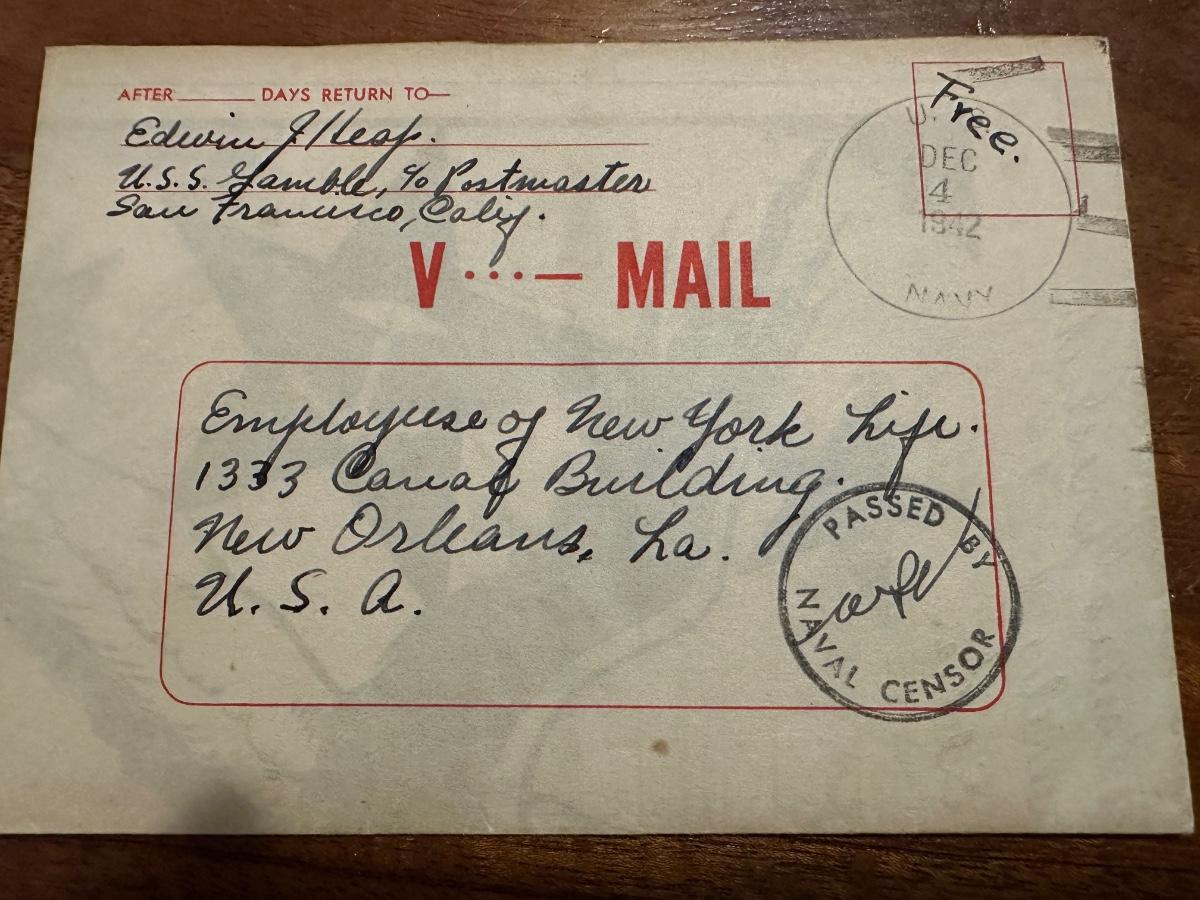 AFTER______ DAYS RETURN TO—
Free.
Edwin J.
U.S.S. Gamble, c/o Postmaster
San Francisco, Calif.
U.
DEC
4
1942
NAVY
V ···— MAIL
Employees of New York Life.
1333 Canal Building.
New Orleans, La.
U. S. A.
PASSED BY
NAVAL CENSOR